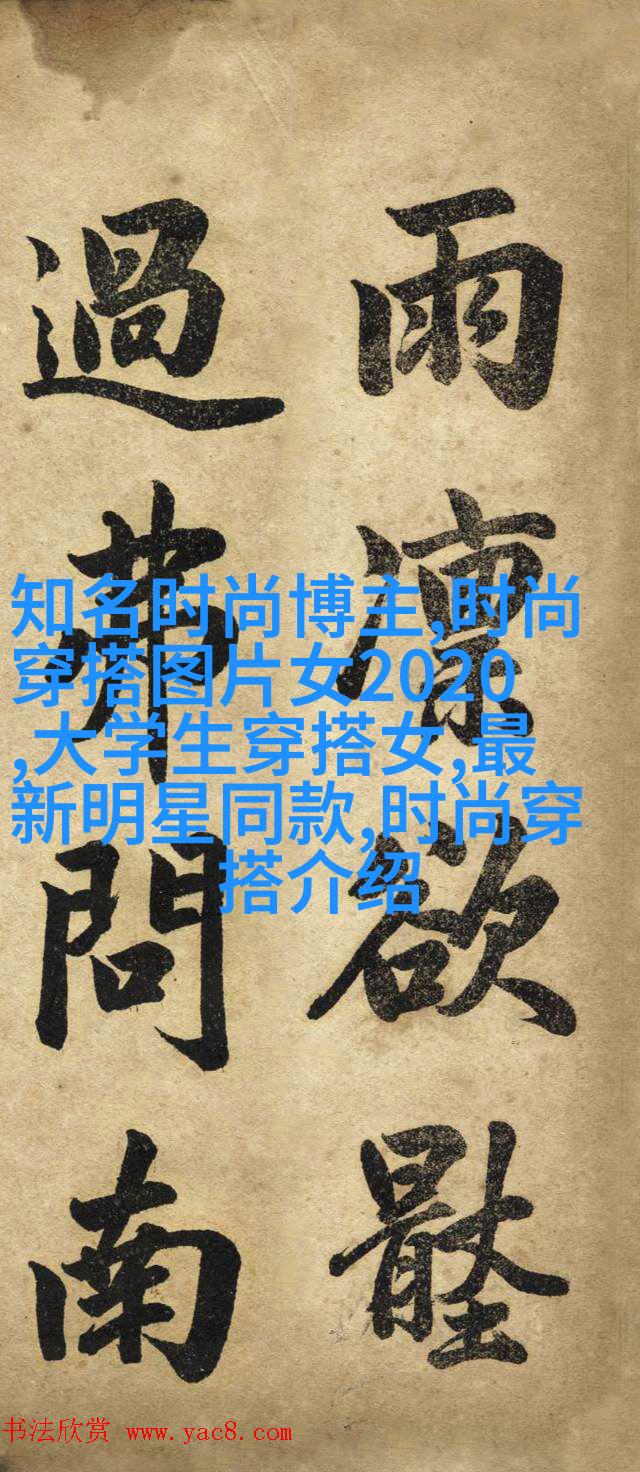 雨
凛
欲
過
問
南
知名时尚博主,时尚
穿搭图片女2020
,大学生穿搭女,最
新明星同款,时尚穿
搭介绍
书法欣赏 www.yac8.com